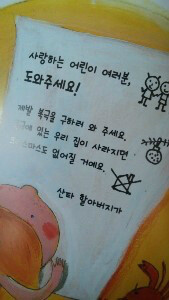 사랑하는 어린이 여러분,
도와주세요!
제발 북극을 구하러 와 주세요.
있는 우리 집이 사라지면
없어질 거예요.
산타 할아버지가